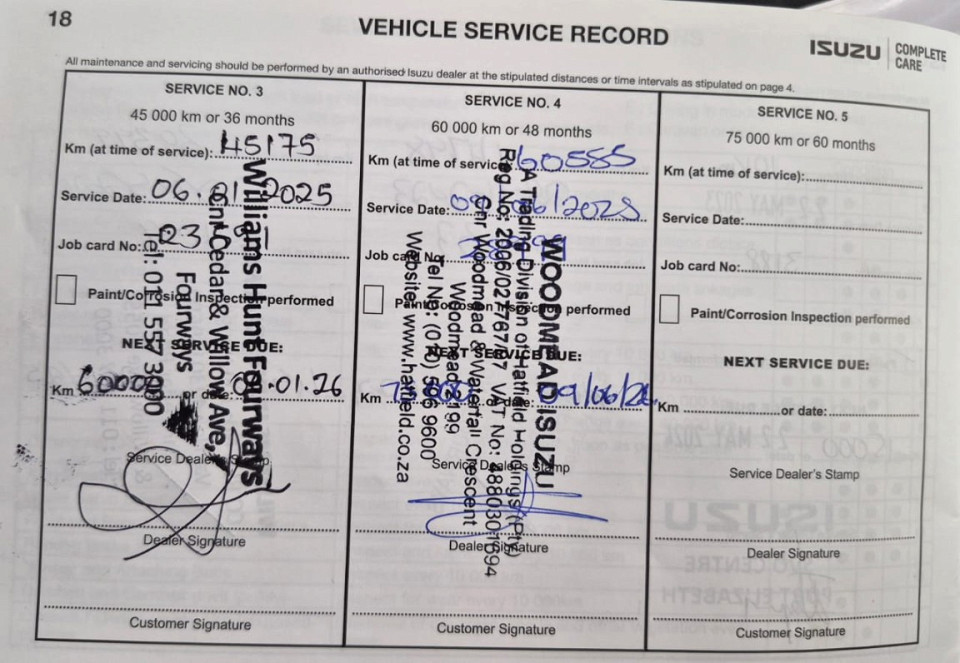 18
VEHICLE SERVICE RECORD
ISUZU COMPLETE CARE
All maintenance and servicing should be performed by an authorised Isuzu dealer at the stipulated distances or time intervals as stipulated on page 4.
SERVICE NO. 3
45 000 km or 36 months
Km (at time of service): 45175
Service Date: 06.01.2025
Job card No.:
Paint/Corrosion Inspection performed
NEXT SERVICE DUE:
Km 60000 or date: .01.26
Service Dealer's Stamp
Williams Hunt Fourways
Cnr Cedar & Willow Ave,
Fourways
Tel: 011 557 3000
Dealer Signature
Customer Signature
SERVICE NO. 4
60 000 km or 48 months
Km (at time of service): 60585
Service Date: 09/06/2025
Job card No.
Paint/Corrosion Inspection performed
NEXT SERVICE DUE:
Km or date: 09/06/26
Service Dealer's Stamp
WOODMEAD ISUZU
A Trading Division of Hatfield Holdings (Pty)
Reg No: 2006/027767/07 VAT No: 4880301694
Cnr Woodmead & Waterfall Crescent
Woodmead 2199
Tel No: (011) 506 9600
Website: www.hatfield.co.za
Dealer Signature
Customer Signature
SERVICE NO. 5
75 000 km or 60 months
Km (at time of service):
Service Date:
Job card No.:
Paint/Corrosion Inspection performed
NEXT SERVICE DUE:
Km or date:
Service Dealer's Stamp
Dealer Signature
Customer Signature